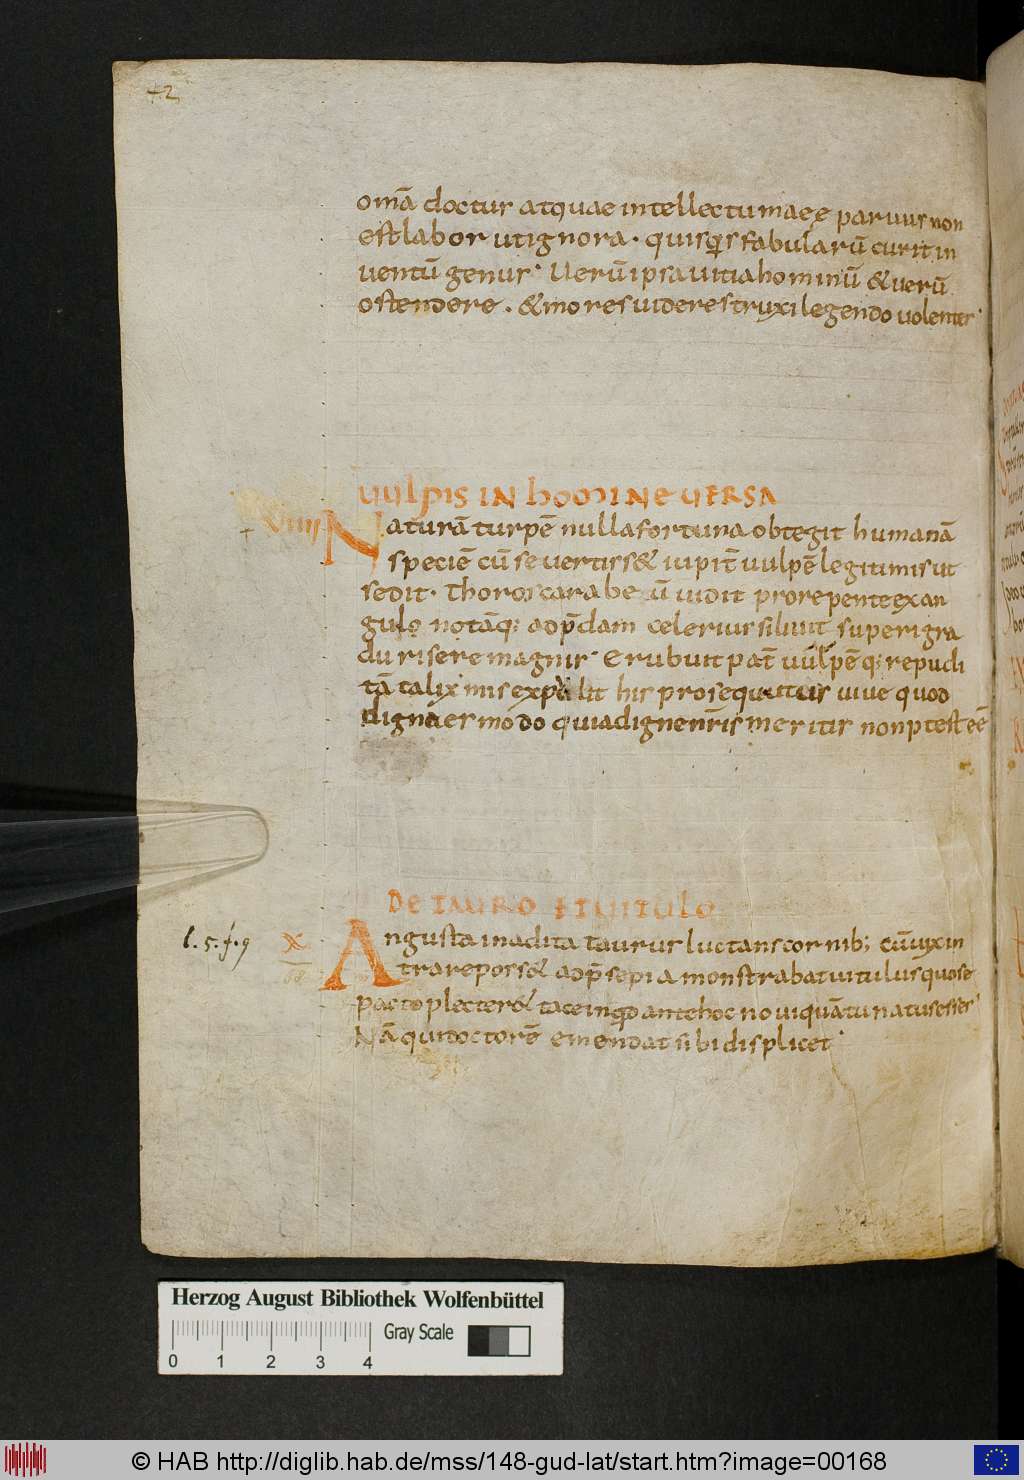 omā doctur atquae intellectumaeę paruus non
est labor ut ignora. quisquis fabularū curit in
uentū genus. Uerū ipsa uitia hominū & uerū
ostendere. & mores uidere struxi legendo uolenter
UULPIS IN HOMINE UERSA
VIIII Naturā turpē nulla fortuna obtegit humanā
speciē cū se uertiss& iupit̄ uulpē legitimis ut
sedit. Thoro scarabeū uidit prorepente exan
gulo notāq; adp̄dam celerius siluit superi gra
du risere magnir. Erubuit pat̄ uulpēq; repudi
tā talix mis expulit his prosequutus uiue quod
digna es modo quia dignen̄ris meritis non ptest eē
DE TAURO & UITULO
l. 5. f. 9
X Angusta in adita taurus luctans cornib; cū uix in
trare pors& adp̄sepia monstrabat uitulus quose
pacto plecter& tace inquid ante hoc noui quātu natus esses
Nā qui doctorē emendat sibi displicet
Herzog August Bibliothek Wolfenbüttel
Gray Scale
0 1 2 3 4
© HAB http://diglib.hab.de/mss/148-gud-lat/start.htm?image=00168